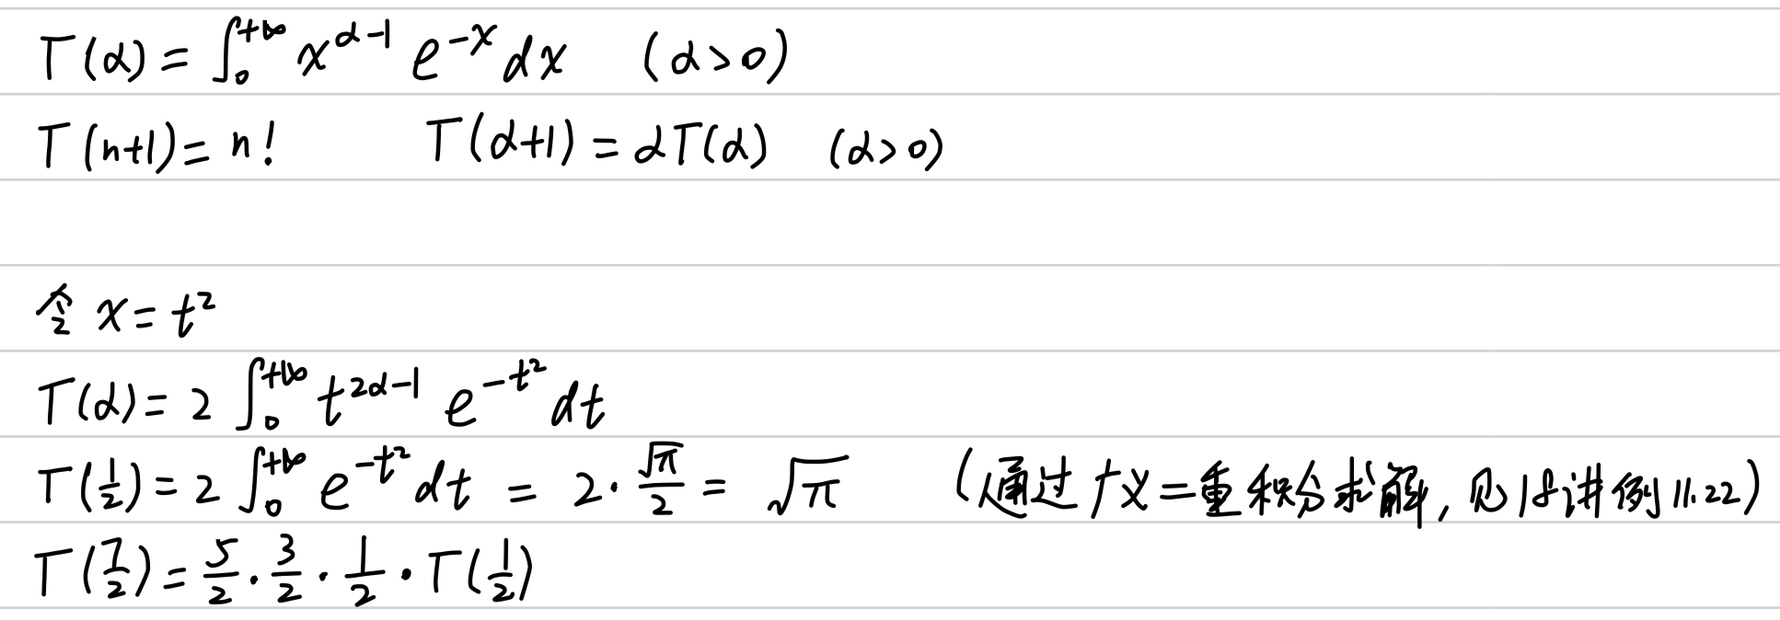 Γ(α) = ∫₀^{+∞} x^{α-1} e^{-x} dx (α>0)
Γ(n+1) = n! Γ(α+1) = αΓ(α) (α>0)
令 x = t²
Γ(α) = 2 ∫₀^{+∞} t^{2α-1} e^{-t²} dt
Γ(1/2) = 2 ∫₀^{+∞} e^{-t²} dt = 2·√π/2 = √π (通过广义二重积分求解, 见18讲例11.22)
Γ(7/2) = 5/2 · 3/2 · 1/2 · Γ(1/2)